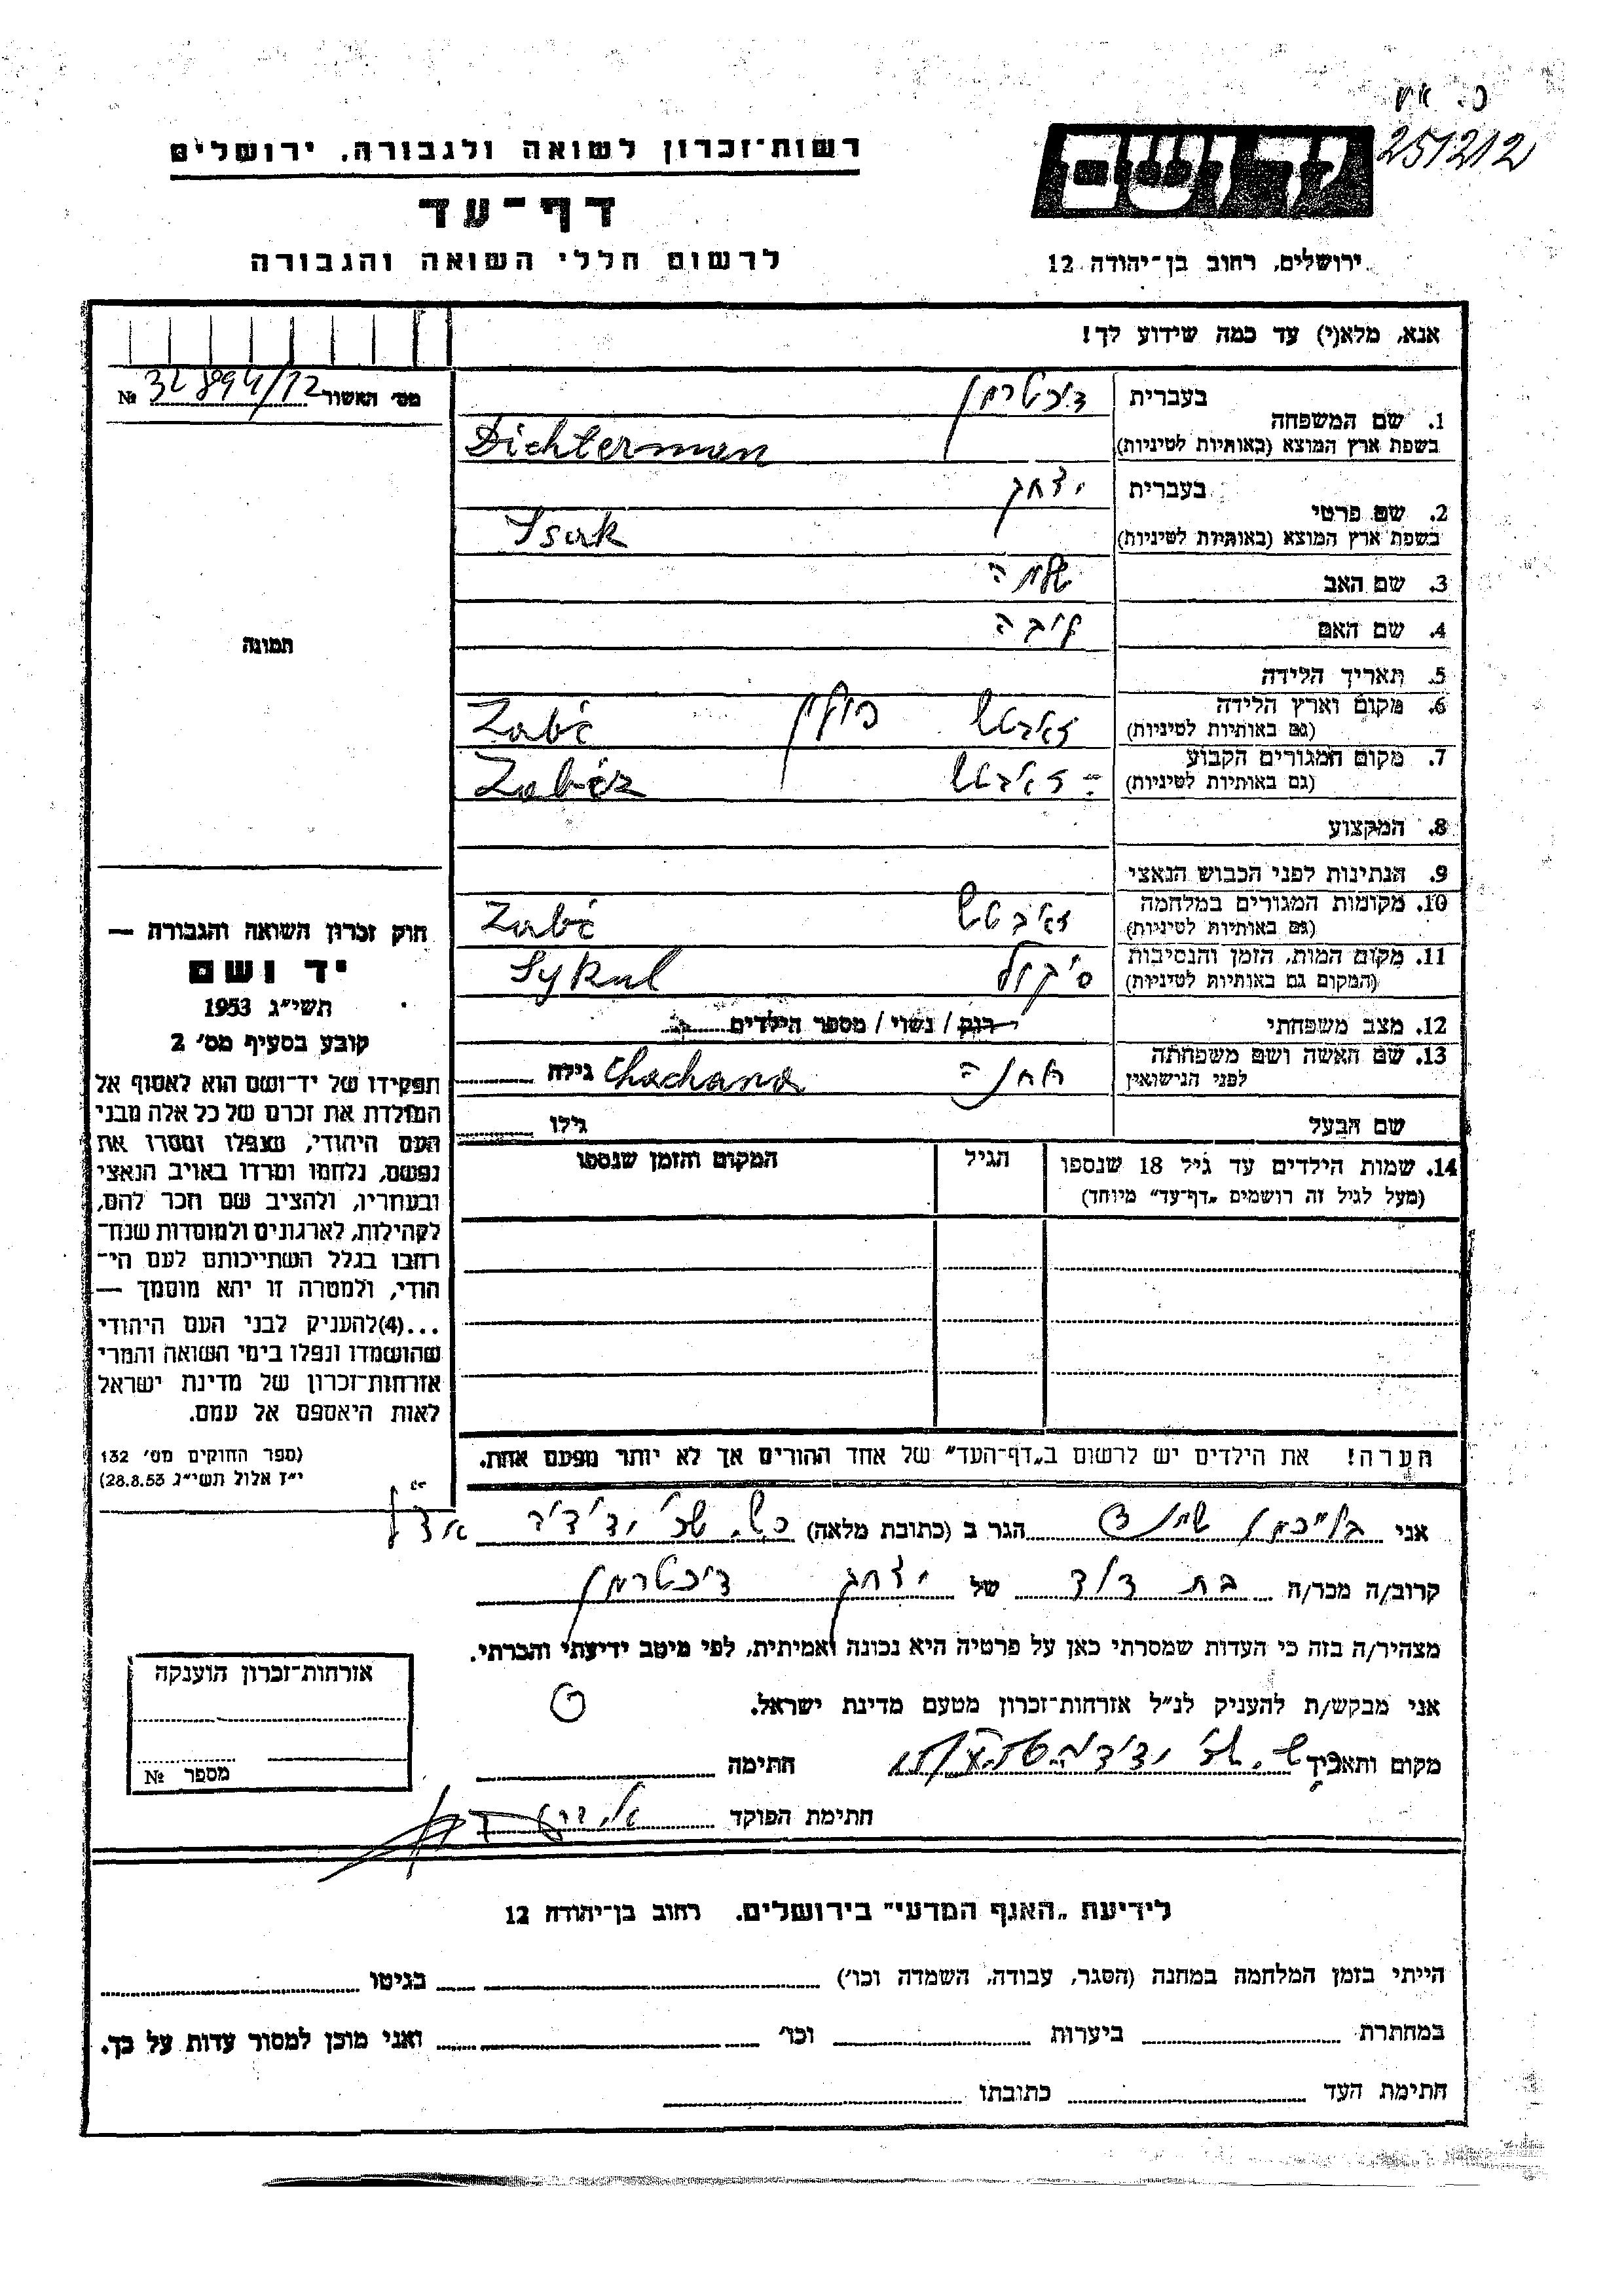 כ. אש
251212
יד ושם
ירושלים, רחוב בן־יהודה 12
רשות־זכרון לשואה ולגבורה, ירושלים
דף־עד
לרשום חללי השואה והגבורה
אנא, מלא(י) עד כמה שידוע לך!
מס׳ האשור 32894/12 №
1. שם המשפחה בעברית דיכטרמן
בשפת ארץ המוצא (באותיות לטיניות) Dichterman
2. שם פרטי בעברית יצחק
בשפת ארץ המוצא (באותיות לטיניות) Isak
3. שם האב שלמה
4. שם האם ליבה
5. תאריך הלידה
6. מקום וארץ הלידה פולין Zabć
(גם באותיות לטיניות)
7. מקום המגורים הקבוע
(גם באותיות לטיניות)
8. המקצוע
9. הנתינות לפני הכבוש הנאצי
10. מקומות המגורים במלחמה Zabć
(גם באותיות לטיניות)
11. מקום המות, הזמן והנסיבות Sykul
(המקום גם באותיות לטיניות)
12. מצב משפחתי רווק / נשוי / מספר הילדים
13. שם האשה ושם משפחתה Chachana גילה
לפני הנישואין
שם הבעל גילו
14. שמות הילדים עד גיל 18 שנספו הגיל המקום והזמן שנספו
(מעל לגיל זה רושמים „דף־עד״ מיוחד)
הערה! את הילדים יש לרשום ב„דף־העד״ של אחד ההורים אך לא יותר מפעם אחת.
תמונה
חוק זכרון השואה והגבורה —
יד ושם
תשי״ג 1953
קובע בסעיף מס׳ 2
תפקידו של יד־ושם הוא לאסוף אל
המולדת את זכרם של כל אלה מבני
העם היהודי, שנפלו ומסרו את
נפשם, נלחמו ומרדו באויב הנאצי
ובעוזריו, ולהציב שם וזכר להם,
לקהילות, לארגונים ולמוסדות שנח־
רבו בגלל השתייכותם לעם הי־
הודי, ולמטרה זו יהא מוסמך —
...(4)להעניק לבני העם היהודי
שהושמדו ונפלו בימי השואה והמרי
אזרחות־זכרון של מדינת ישראל
לאות היאספם אל עמם.
(ספר החוקים מס׳ 132
י״ז אלול תשי״ג 28.8.53)
אני הגר ב (כתובת מלאה)
קרוב/ה מכר/ה בת דוד של יצחק דיכטרמן
מצהיר/ה בזה כי העדות שמסרתי כאן על פרטיה היא נכונה ואמיתית, לפי מיטב ידיעתי והכרתי.
אני מבקש/ת להעניק לנ״ל אזרחות־זכרון מטעם מדינת ישראל.
מקום ותאריך חתימה
חתימת הפוקד
אזרחות־זכרון הוענקה
מספר №
לידיעת „האגף המדעי״ בירושלים. רחוב בן־יהודה 12
הייתי בזמן המלחמה במחנה (הסגר, עבודה, השמדה וכו׳) בגיטו
במחתרת ביערות וכו׳ ואני מוכן למסור עדות על כך.
חתימת העד כתובתו